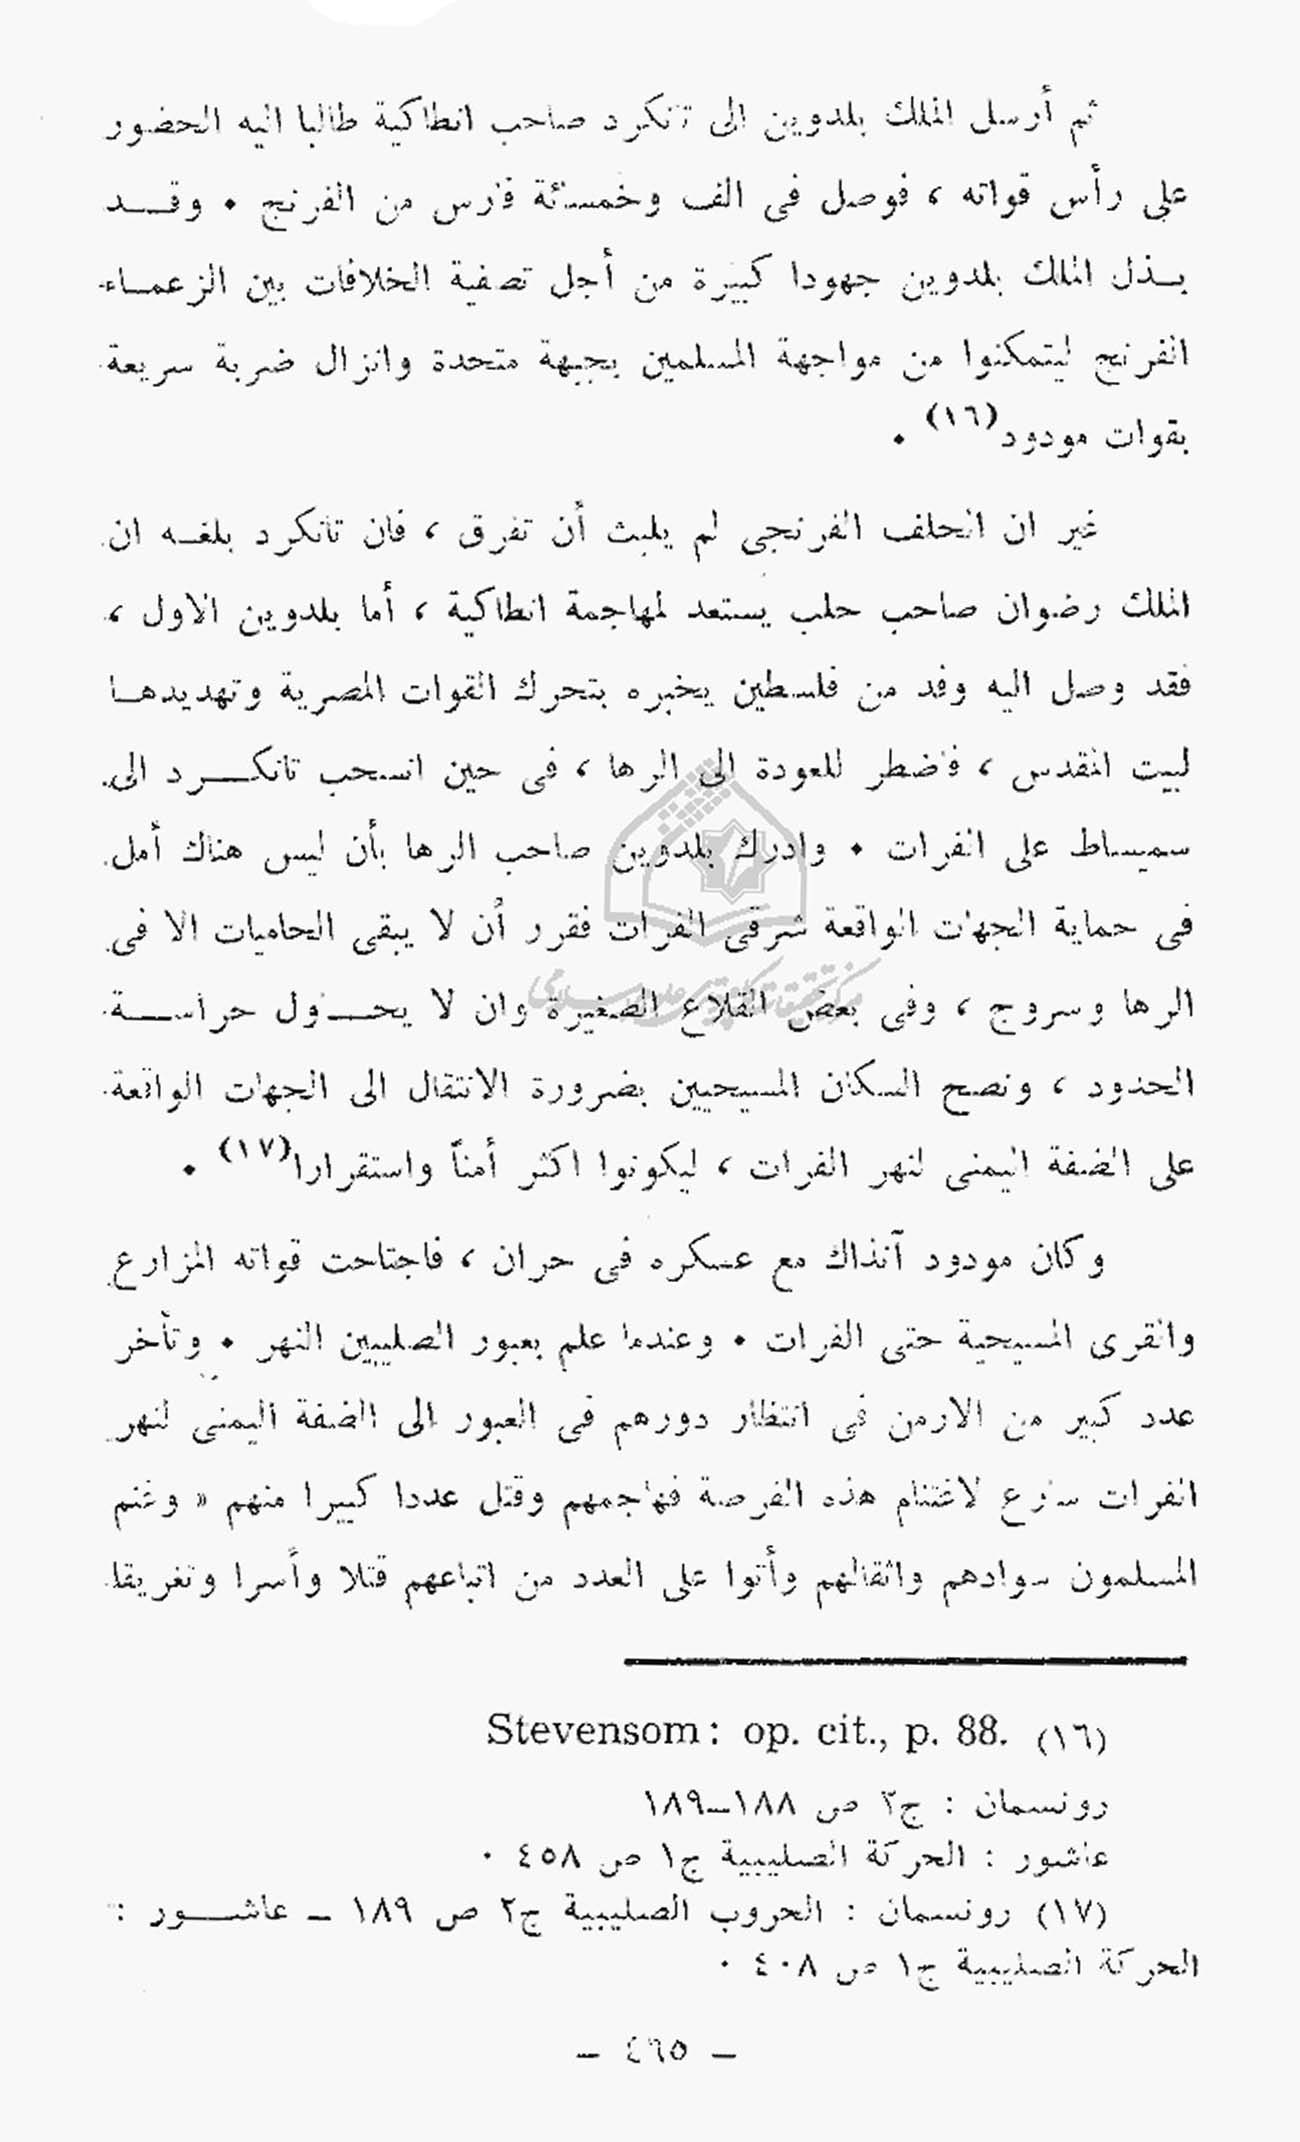 ثم أرسل الملك بلدوين الى تانكرد صاحب انطاكية طالبا اليه الحضور
على رأس قواته ، فوصل فى الف وخمسائة فارس من الفرنج • وقــد
بـذل الملك بلدوين جهودا كبيرة من أجل تصفية الخلافات بين الزعمـاء
الفرنج ليتمكنوا من مواجهة المسلمين بجبهة متحدة وانزال ضربة سريعة
بقوات مودود(١٦) •
غير ان الحلف الفرنجى لم يلبث أن تفرق ، فان تانكرد بلغـه ان
الملك رضوان صاحب حلب يستعد لمهاجمة انطاكية ، أما بلدوين الاول ،
فقد وصل اليه وفد من فلسطين يخبره بتحرك القوات المصرية وتهديدهـا
لبيت المقدس ، فاضطر للعودة الى الرها ، فى حين انسحب تانكــرد الى
سميساط على الفرات • وادرك بلدوين صاحب الرها بأن ليس هناك أمل
فى حماية الجهات الواقعة شرقى الفرات فقرر أن لا يبقى الحاميات الا فى
الرها وسروج ، وفى بعض القلاع الصغيرة وان لا يحــاول حراســة
الحدود ، ونصح السكان المسيحيين بضرورة الانتقال الى الجهات الواقعة
على الضفة اليمنى لنهر الفرات ، ليكونوا اكثر أمناً واستقرارا(١٧) •
وكان مودود آنذاك مع عسكره فى حران ، فاجتاحت قواته المزارع
والقرى المسيحية حتى الفرات • وعندما علم بعبور الصليبيين النهر • وتأخر
عدد كبير من الارمن فى انتظار دورهم فى العبور الى الضفة اليمنى لنهر
الفرات سارع لاغتنام هذه الفرصة فهاجمهم وقتل عددا كبيرا منهم « وغنم
المسلمون سوادهم واثقالهم وأتوا على العدد من اتباعهم قتلا وأسرا وتغريقا
(١٦) Stevensom: op. cit., p. 88.
رونسمان : ج٢ ص ١٨٨ــ١٨٩
عاشور : الحركة الصليبية ج١ ص ٤٥٨ •
(١٧) رونسمان : الحروب الصليبية ج٢ ص ١٨٩ ــ عاشــور :
الحركة الصليبية ج١ ص ٤٠٨ •
ــ ٤٦٥ ــ